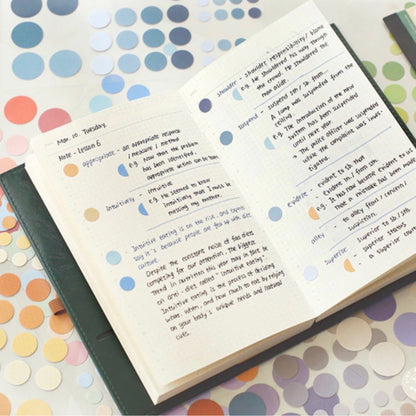 Mar. 10. Tuesday
Note - Lesson 6
appropriate - an appropriate response
/ measure / method
e.g. Now that the problem
has been identified,
appropriate action can be taken
Intuitively - intuitive
e.g. He seemed to know
intuitively that I must be
missing my mother.
Intuitive eating is on the rise, and experts
say it's because people are fed up with diet
culture.
Despite the constant noise of fad diets
competing for our attention, the biggest
trend in nutrition this year may in fact be
an anti-diet called "intuitive eating".
Intuitive eating is the process of deciding
when, what, and how much to eat by relying
on your body's unique needs and natural
cues.
shoulder - shoulder responsibility / blame
e.g. He shouldered his way through
the crowd. He shouldered the
man aside.
suspend - suspend sth / sb. from
e.g. A lamp was suspended from the
ceiling
e.g. The introduction of the new
system has been suspended
until next year.
e.g. The police officer was suspended
while the complaint was inves-
tigated.
evidence - evident to sb that
evident in / from sth.
e.g. It has now become evident to us
that a mistake has been made
alley - to alley fears / concern /
suspicion.
superior - superior to sb / sth
e.g. superior status
a superior